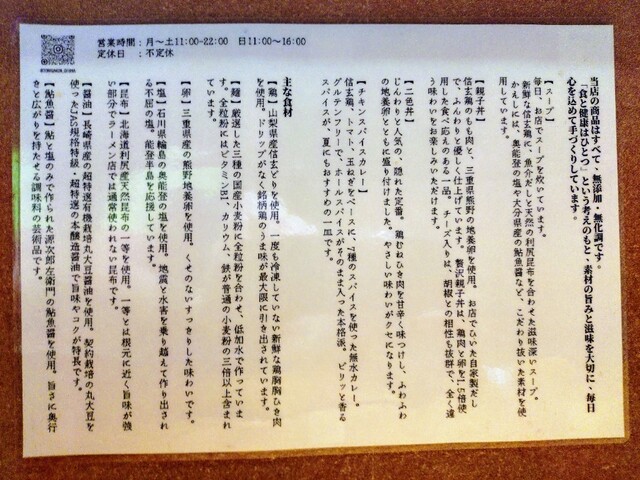 営業時間：月～土11:00-22:00　日11:00～16:00
定休日　：不定休
当店の商品はすべて、無添加・無化調です。
「食と健康はひとつ」という考えのもと、素材の旨みと滋味を大切に、毎日
心を込めて手づくりしています。
【スープ】
毎日、お店でスープを炊いています。
新鮮な信玄鶏に、魚介だしと天然の利尻昆布を合わせた滋味深いスープ。
かえしには、奥能登の塩や大分県産の鮎魚醤など、こだわり抜いた素材を使
用しています。
【親子丼】
信玄鶏のもも肉と、三重県熊野の地養卵を使用。お店でひいた自家製だし
で、ふんわりと優しく仕上げています。贅沢親子丼は、鶏肉と卵を1.5倍使
用した食べ応えのある一品。チーズ入りは、胡椒との相性も抜群で、全く違
う味わいをお楽しみいただけます。
【二色丼】
じんわりと人気の、隠れた定番。鶏むねひき肉を甘辛く味つけし、ふわふわ
の地養卵とともに盛り付けました。やさしい味わいがクセになります。
【チキンスパイスカレー】
信玄鶏、トマト、玉ねぎをベースに、7種のスパイスを使った無水カレー。
グルテンフリーで、ホールスパイスがそのまま入った本格派。ピリッと香る
スパイスが、夏にもおすすめの一皿です。
主な食材
【鶏】山梨県産信玄どりを使用。一度も冷凍していない新鮮な鶏胸ひき肉
を使用。ドリップがなく銘柄鶏のうま味が最大限に引き出されています。
【麺】厳選した三種の国産小麦粉に全粒粉を合わせ、低加水で作っていま
す。全粒粉にはビタミンB1、カリウム、鉄が普通の小麦粉の三倍以上含まれ
ています。
【卵】三重県産の熊野地養卵を使用。くせのないすっきりした味わいです。
【塩】石川県輪島の奥能登の塩を使用。地震と水害を乗り越えて作り出され
る不屈の塩。能登半島を応援しています。
【昆布】北海道利尻産天然昆布の一等を使用。一等とは根元に近く旨味が強
い部分でラーメン店では通常使われない昆布です。
【醤油】長崎県産の超特選有機栽培丸大豆醤油を使用。契約栽培の丸大豆を
使ったJAS規格特級・超特選の本醸造醤油で旨味やコクが特長です。
【鮎魚醤】鮎と塩のみで作られた源次郎左衛門の鮎魚醤を使用。旨さに奥行
きと広がりを持たせる調味料の芸術品です。